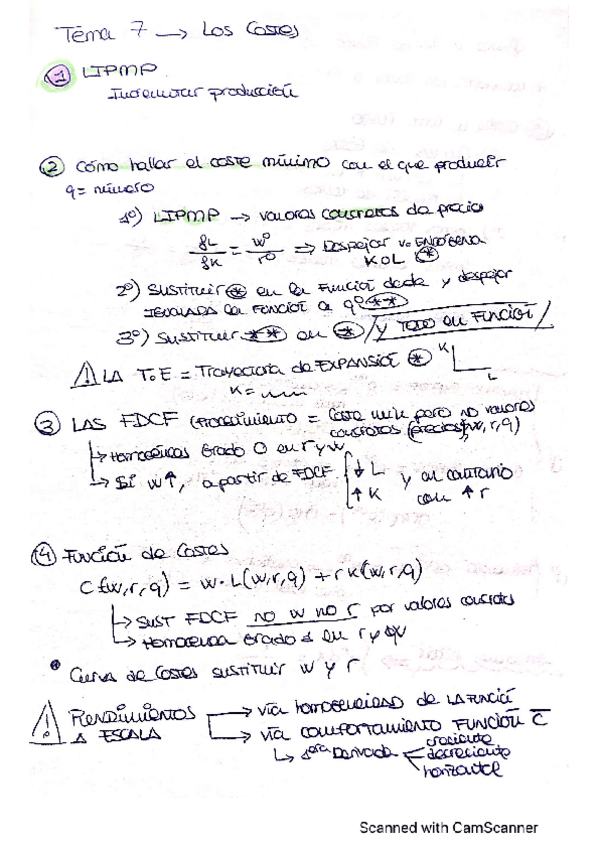 Tema 7 → Los Costes
① LIPMP
Incrementar producción
② Cómo hallar el coste mínimo con el que producir
q = número
1º) LIPMP → valores concretos de precio
fL/fK = w⁰/r⁰ ⇒ Despejar v. ENDÓGENA
K o L ⊛
2º) Sustituir ⊛ en la Función dada y despejar
IGUALADA la FUNCIÓN a q⁰ (**)
3º) Sustituir (**) en ⊛ / y todo en FUNCIÓN /
⚠ LA T.E = Trayectoria de EXPANSIÓN ⊛ K L
K =
③ LAS FDCF (Procedimiento = Coste mín pero no valores
concretos (precios) w, r, q)
↳ Homogéneas Grado 0 en r y w
↳ Si w↑, a partir de FDCF { ↓ L ↑ K y al contrario
con ↑ r
④ Función de Costes
C(w,r,q) = w·L(w,r,q) + r K(w,r,q)
↳ SUST FDCF no w no r por valores concretos
↳ Homogénea Grado 1 en r y w
• Curva de Costes sustituir w y r
⚠ RENDIMIENTOS → vía homogeneidad de LA FUNCIÓ
A ESCALA → vía COMPORTAMIENTO FUNCIÓN C̅
↳ 1era Derivada creciente
decreciente
horizontal
Scanned with CamScanner